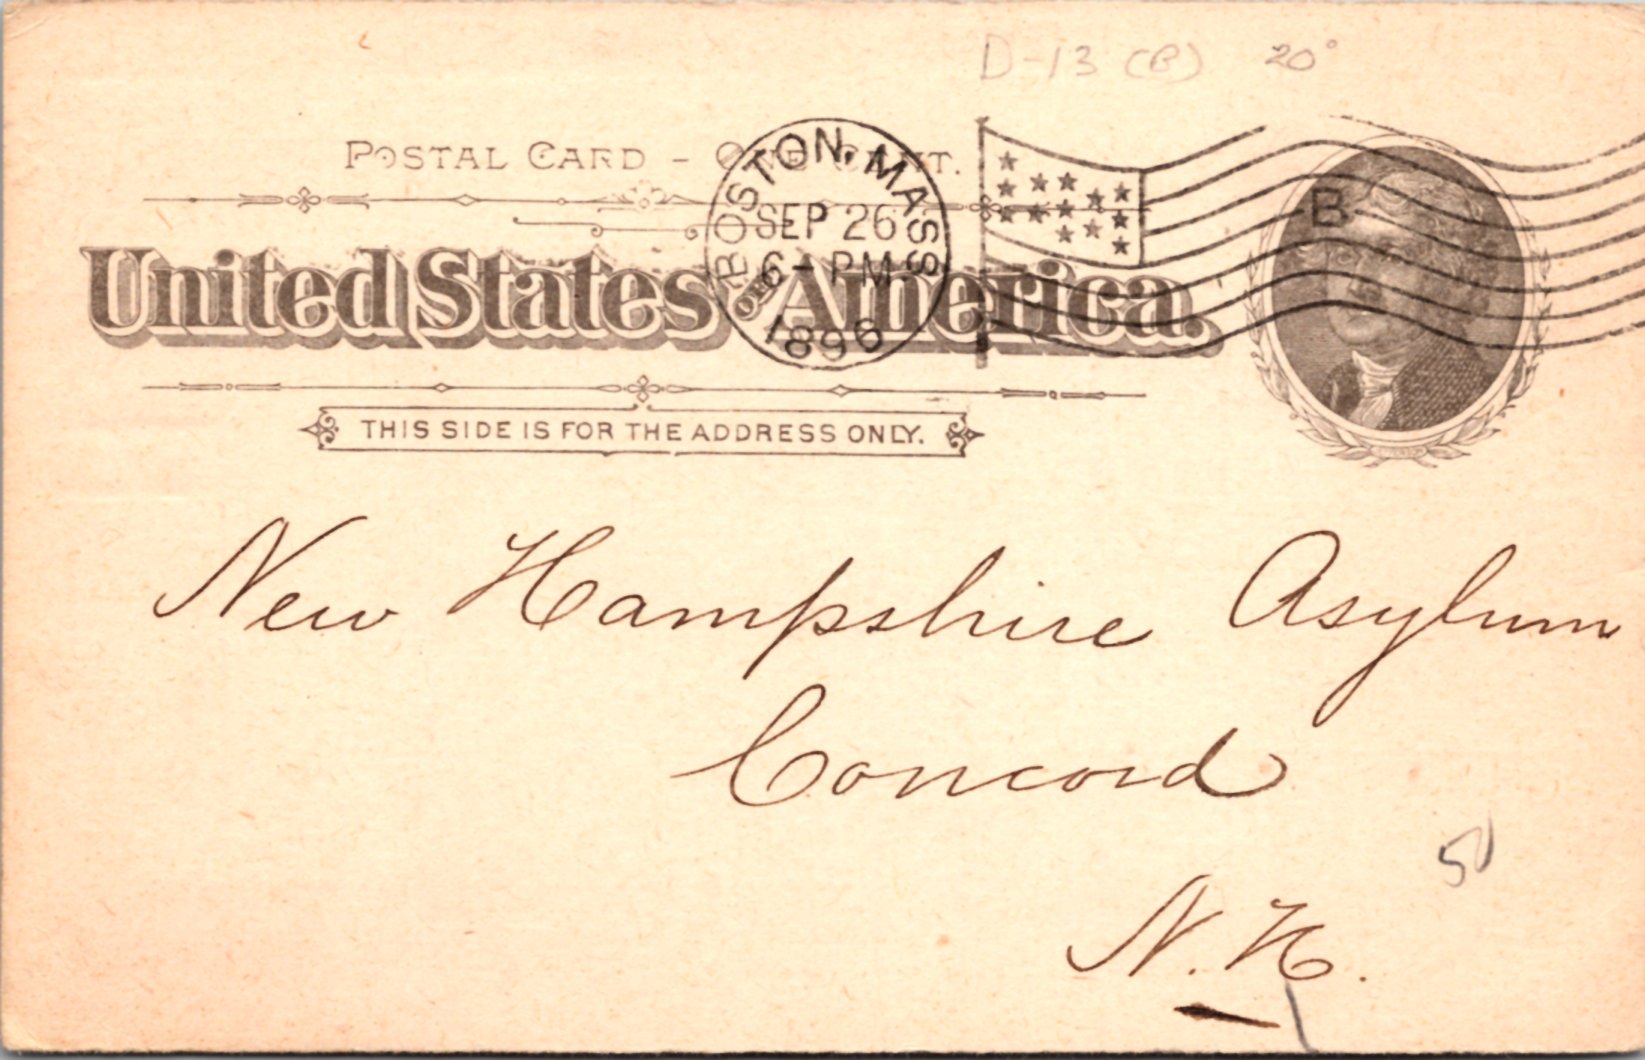 D-13 (B) 20°
POSTAL CARD - ONE CENT.
United States of America.
THIS SIDE IS FOR THE ADDRESS ONLY.
BOSTON, MASS
SEP 26
6 - PM
1896
B
JEFFERSON
New Hampshire Asylum
Concord
N. H.